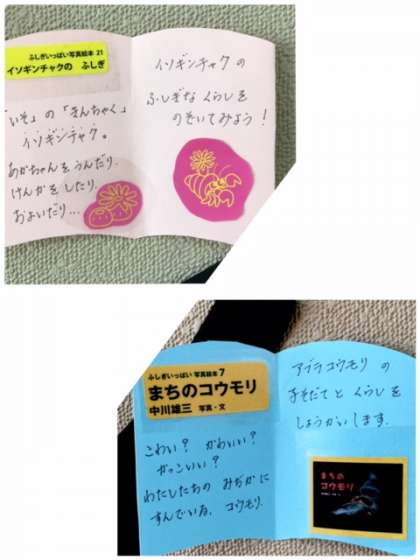 ふしぎいっぱい写真絵本 21
イソギンチャクの ふしぎ
「いそ」の「きんちゃく」
イソギンチャク。
あかちゃんをうんだり、
けんかをしたり、
およいだり…
イソギンチャクの
ふしぎな くらしを
のぞいてみよう!
ふしぎいっぱい 写真絵本 7
まちのコウモリ
中川雄三 写真・文
こわい? かわいい?
かっこいい?
わたしたちの みぢかに
すんでいる、コウモリ。
アブラコウモリ の
子そだてと くらしを
しょうかいします。
まちの
コウモリ